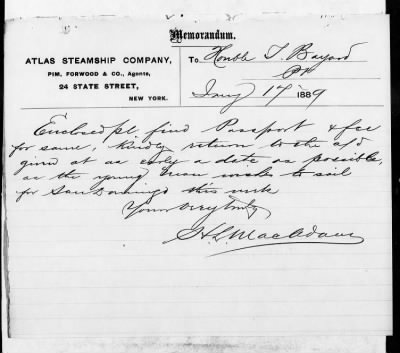 Memorandum.
ATLAS STEAMSHIP COMPANY,
PIM, FORWOOD & CO., Agents,
24 STATE STREET,
NEW YORK.
To Honble T. Bayard
Jany 17 1889
Enclosed pl. find Passport & fee
for same, Kindly return to the a/d
given at as early a date as possible,
as the young man wishes to sail
for San Domingo this week
Yours very truly
H. L. MacAdam